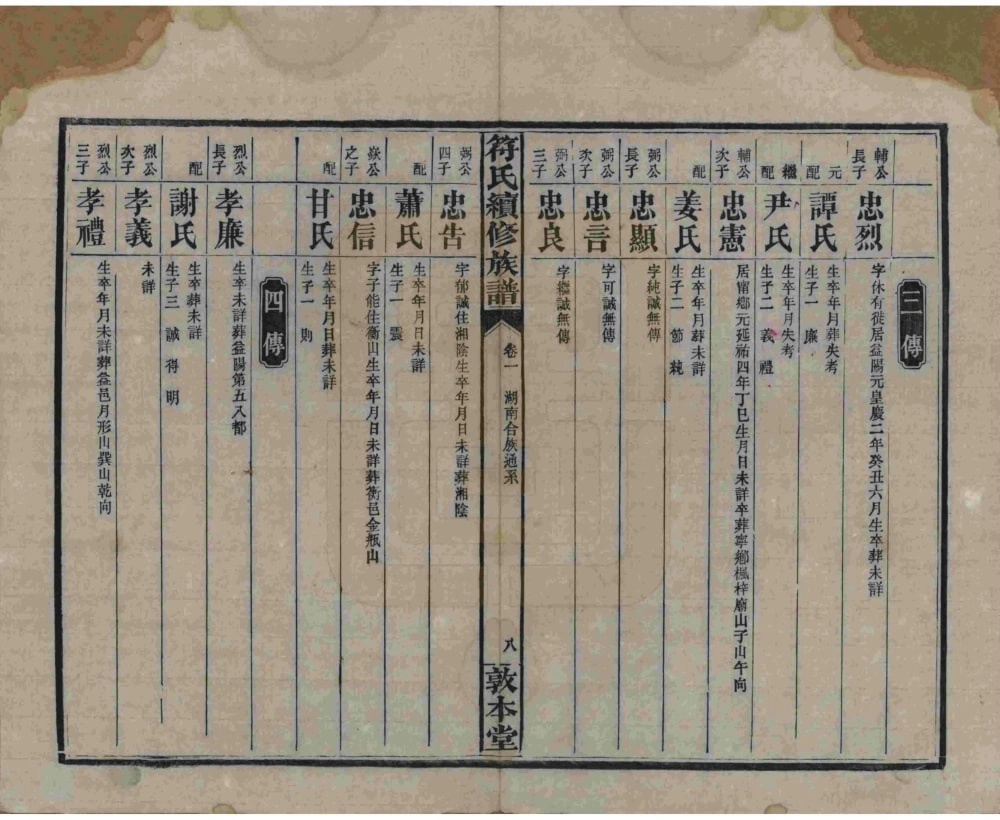 三傳
輔公長子
忠烈
字休有徙居益陽元皇慶二年癸丑六月生卒葬未詳
元配
譚氏
生卒年月葬失考
生子一　廉
繼配
尹氏
生卒年月失考
生子二　義　禮
輔公次子
忠憲
居甯鄉元延祐四年丁巳生月日未詳卒葬寧鄉楓梓廟山子山午向
配
姜氏
生卒年月葬未詳
生子二　節
弼公長子
忠顯
字純誠無傳
弼公次子
忠言
字可誠無傳
弼公三子
忠良
字繼誠無傳
符氏續修族譜
卷一　湖南合族通系
八
敦本堂
弼公四子
忠告
字郁誠住湘陰生卒年月日未詳葬湘陰
配
蕭氏
生卒年月日未詳
生子一
嶽公之子
忠信
字子能住衡山生卒年月日未詳葬衡邑金瓶山
配
甘氏
生卒年月日葬未詳
生子一　則
四傳
烈公長子
孝廉
生卒未詳葬益陽第五八都
配
謝氏
生卒葬未詳
生子三　誠　得　明
烈公次子
孝義
未詳
烈公三子
孝禮
生卒年月未詳葬益邑月形山巽山乾向